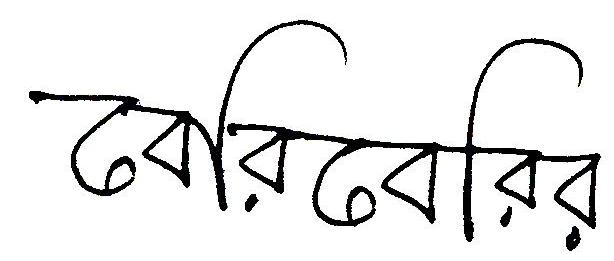 বেরিবেরির